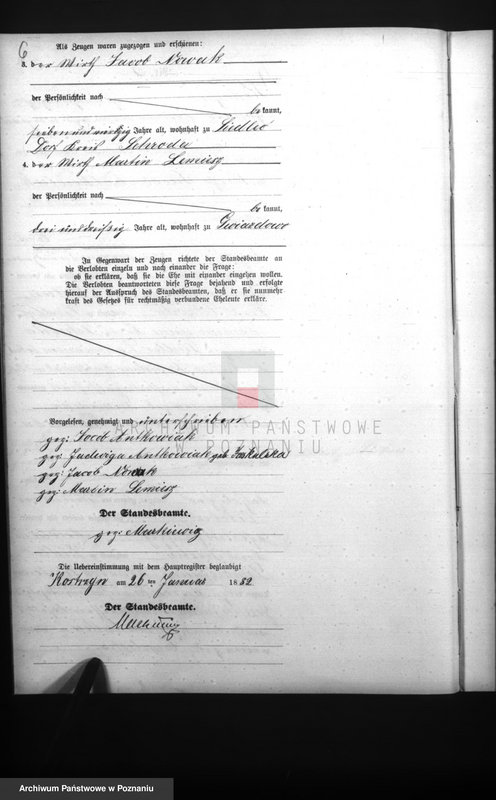 6
Als Zeugen waren zugezogen und erschienen:
3. der Wirth Jacob Nowak
der Persönlichkeit nach
be kannt,
sieben und vierzig Jahre alt, wohnhaft zu Siedlec
Dorf Kreis Schroda
4. der Wirth Martin Lemiesz
der Persönlichkeit nach
be kannt,
drei und dreißig Jahre alt, wohnhaft zu Gwiazdowo
In Gegenwart der Zeugen richtete der Standesbeamte an
die Verlobten einzeln und nach einander die Frage:
ob sie erklären, daß sie die Ehe mit einander eingehen wollen.
Die Verlobten beantworteten diese Frage bejahend und erfolgte
hierauf der Ausspruch des Standesbeamten, daß er sie nunmehr
kraft des Gesetzes für rechtmäßig verbundene Eheleute erkläre.
ARCHIWUM PAŃSTWOWE
W POZNANIU
Vorgelesen, genehmigt und unterschrieben
gez: Jacob Antkowiak
gez: Jadwiga Antkowiak geb
gez: Jacob Nowak
gez: Martin Lemiesz
Der Standesbeamte.
gez:
Die Uebereinstimmung mit dem Hauptregister beglaubigt
Kostrzyn am 26 ten Januar 1882
Der Standesbeamte.
Archiwum Państwowe w Poznaniu